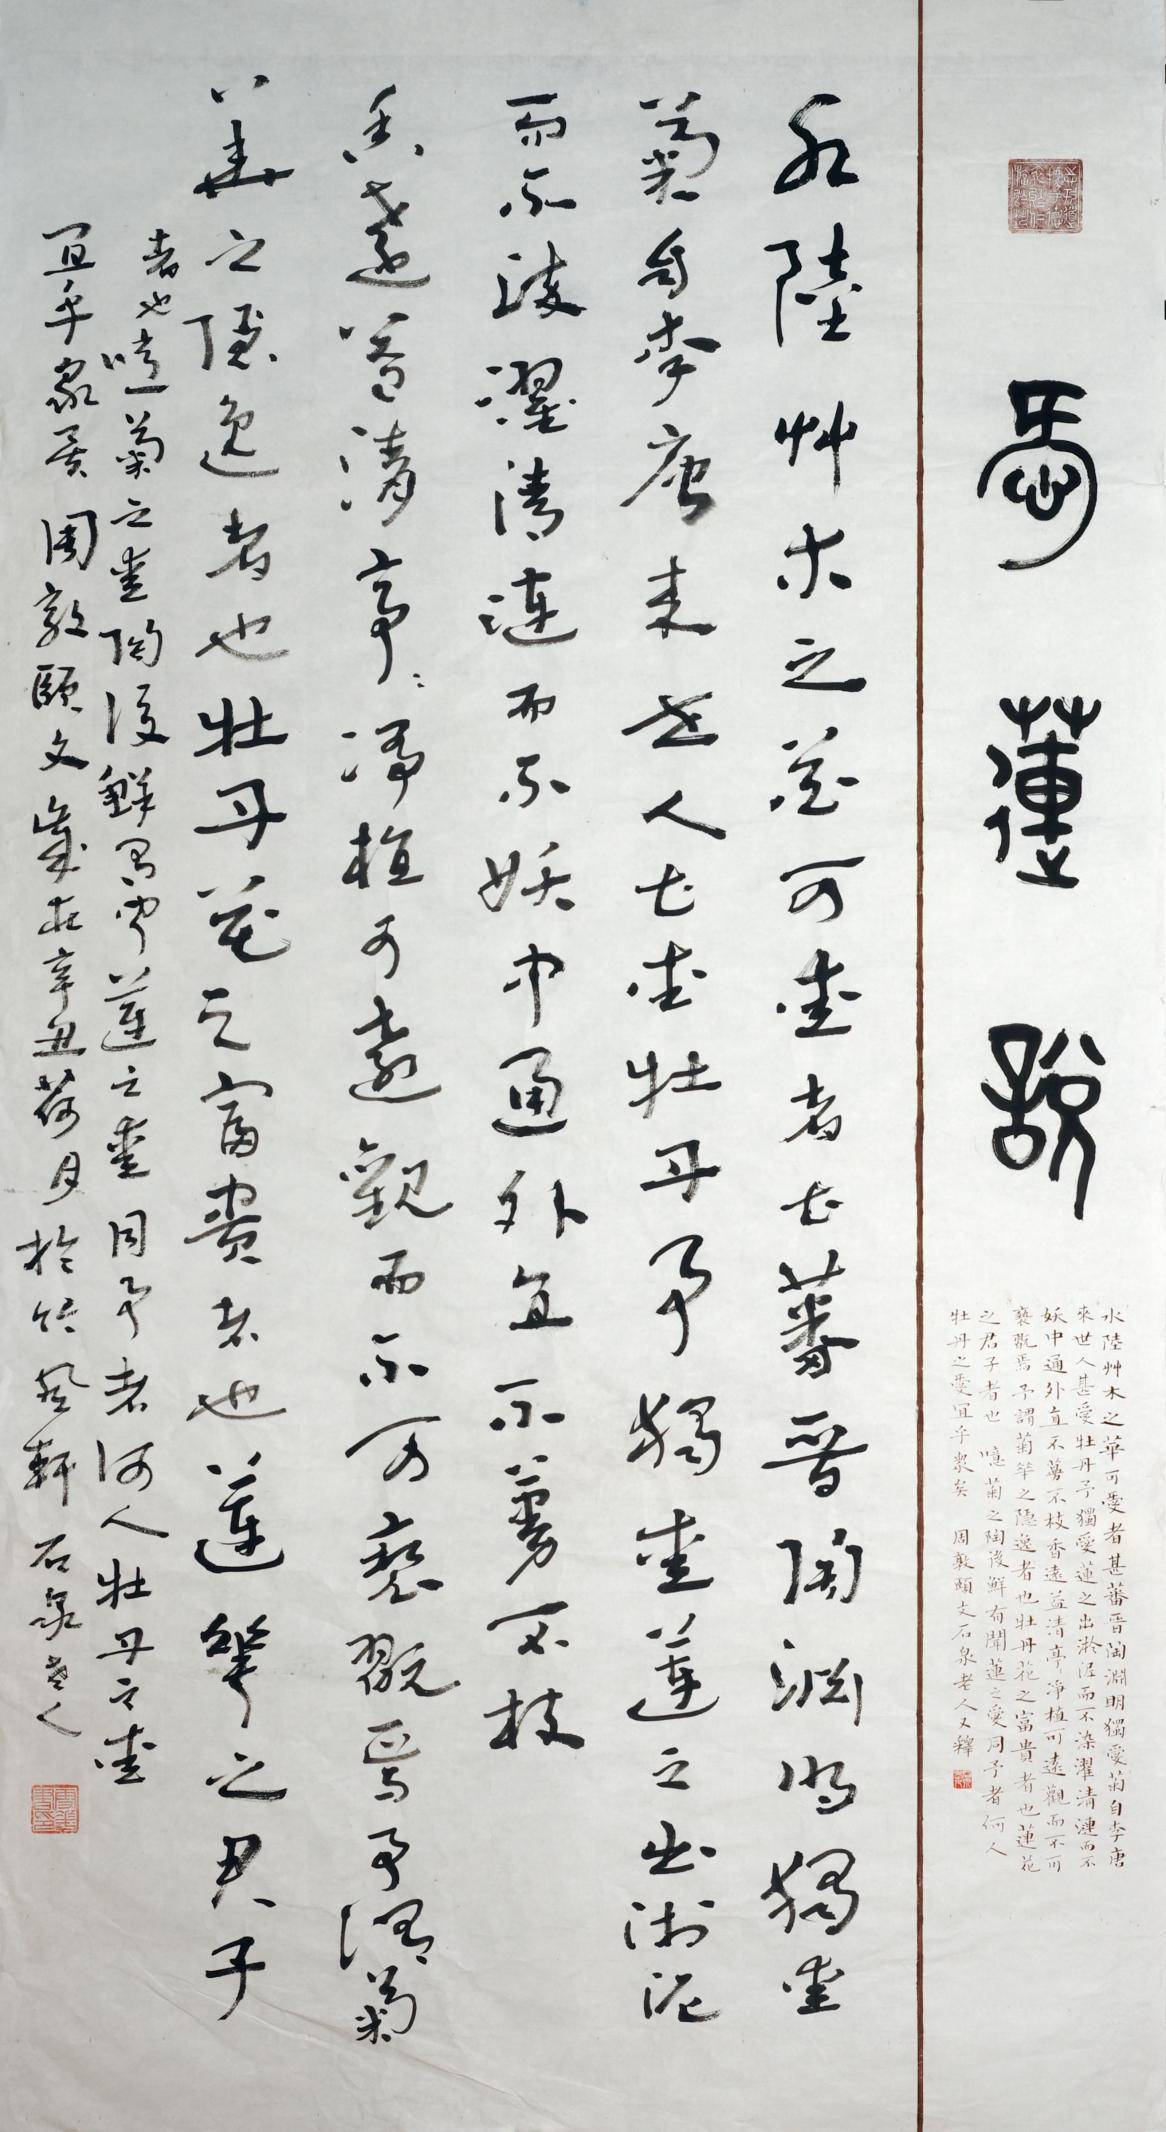 愛蓮說
水陸艸木之華可愛者甚蕃晉陶淵明獨愛菊自李唐
來世人甚愛牡丹予獨愛蓮之出淤泥而不染濯清漣而不
妖中通外直不蔓不枝香遠益清亭〻淨植可遠觀而不可
褻翫焉予謂菊華之隱逸者也牡丹花之富貴者也蓮花
之君子者也 噫菊之陶後鮮有聞蓮之愛同予者何人
牡丹之愛宜乎衆矣 周敦頤文石泉老人又釋
水陸艸木之花可愛者甚蕃晉陶淵明獨愛
菊自李唐來世人甚愛牡丹予獨愛蓮之出淤泥
而不染濯清漣而不妖中通外直不蔓不枝
香遠益清亭〻淨植可遠觀而不可褻翫焉予謂菊
華之隱逸者也牡丹花之富貴者也蓮華之君子
者也噫菊之愛陶後鮮有聞蓮之愛同予者何人牡丹之愛
宜乎衆矣 周敦頤文歲在辛丑荷月於竹風軒 石泉老人